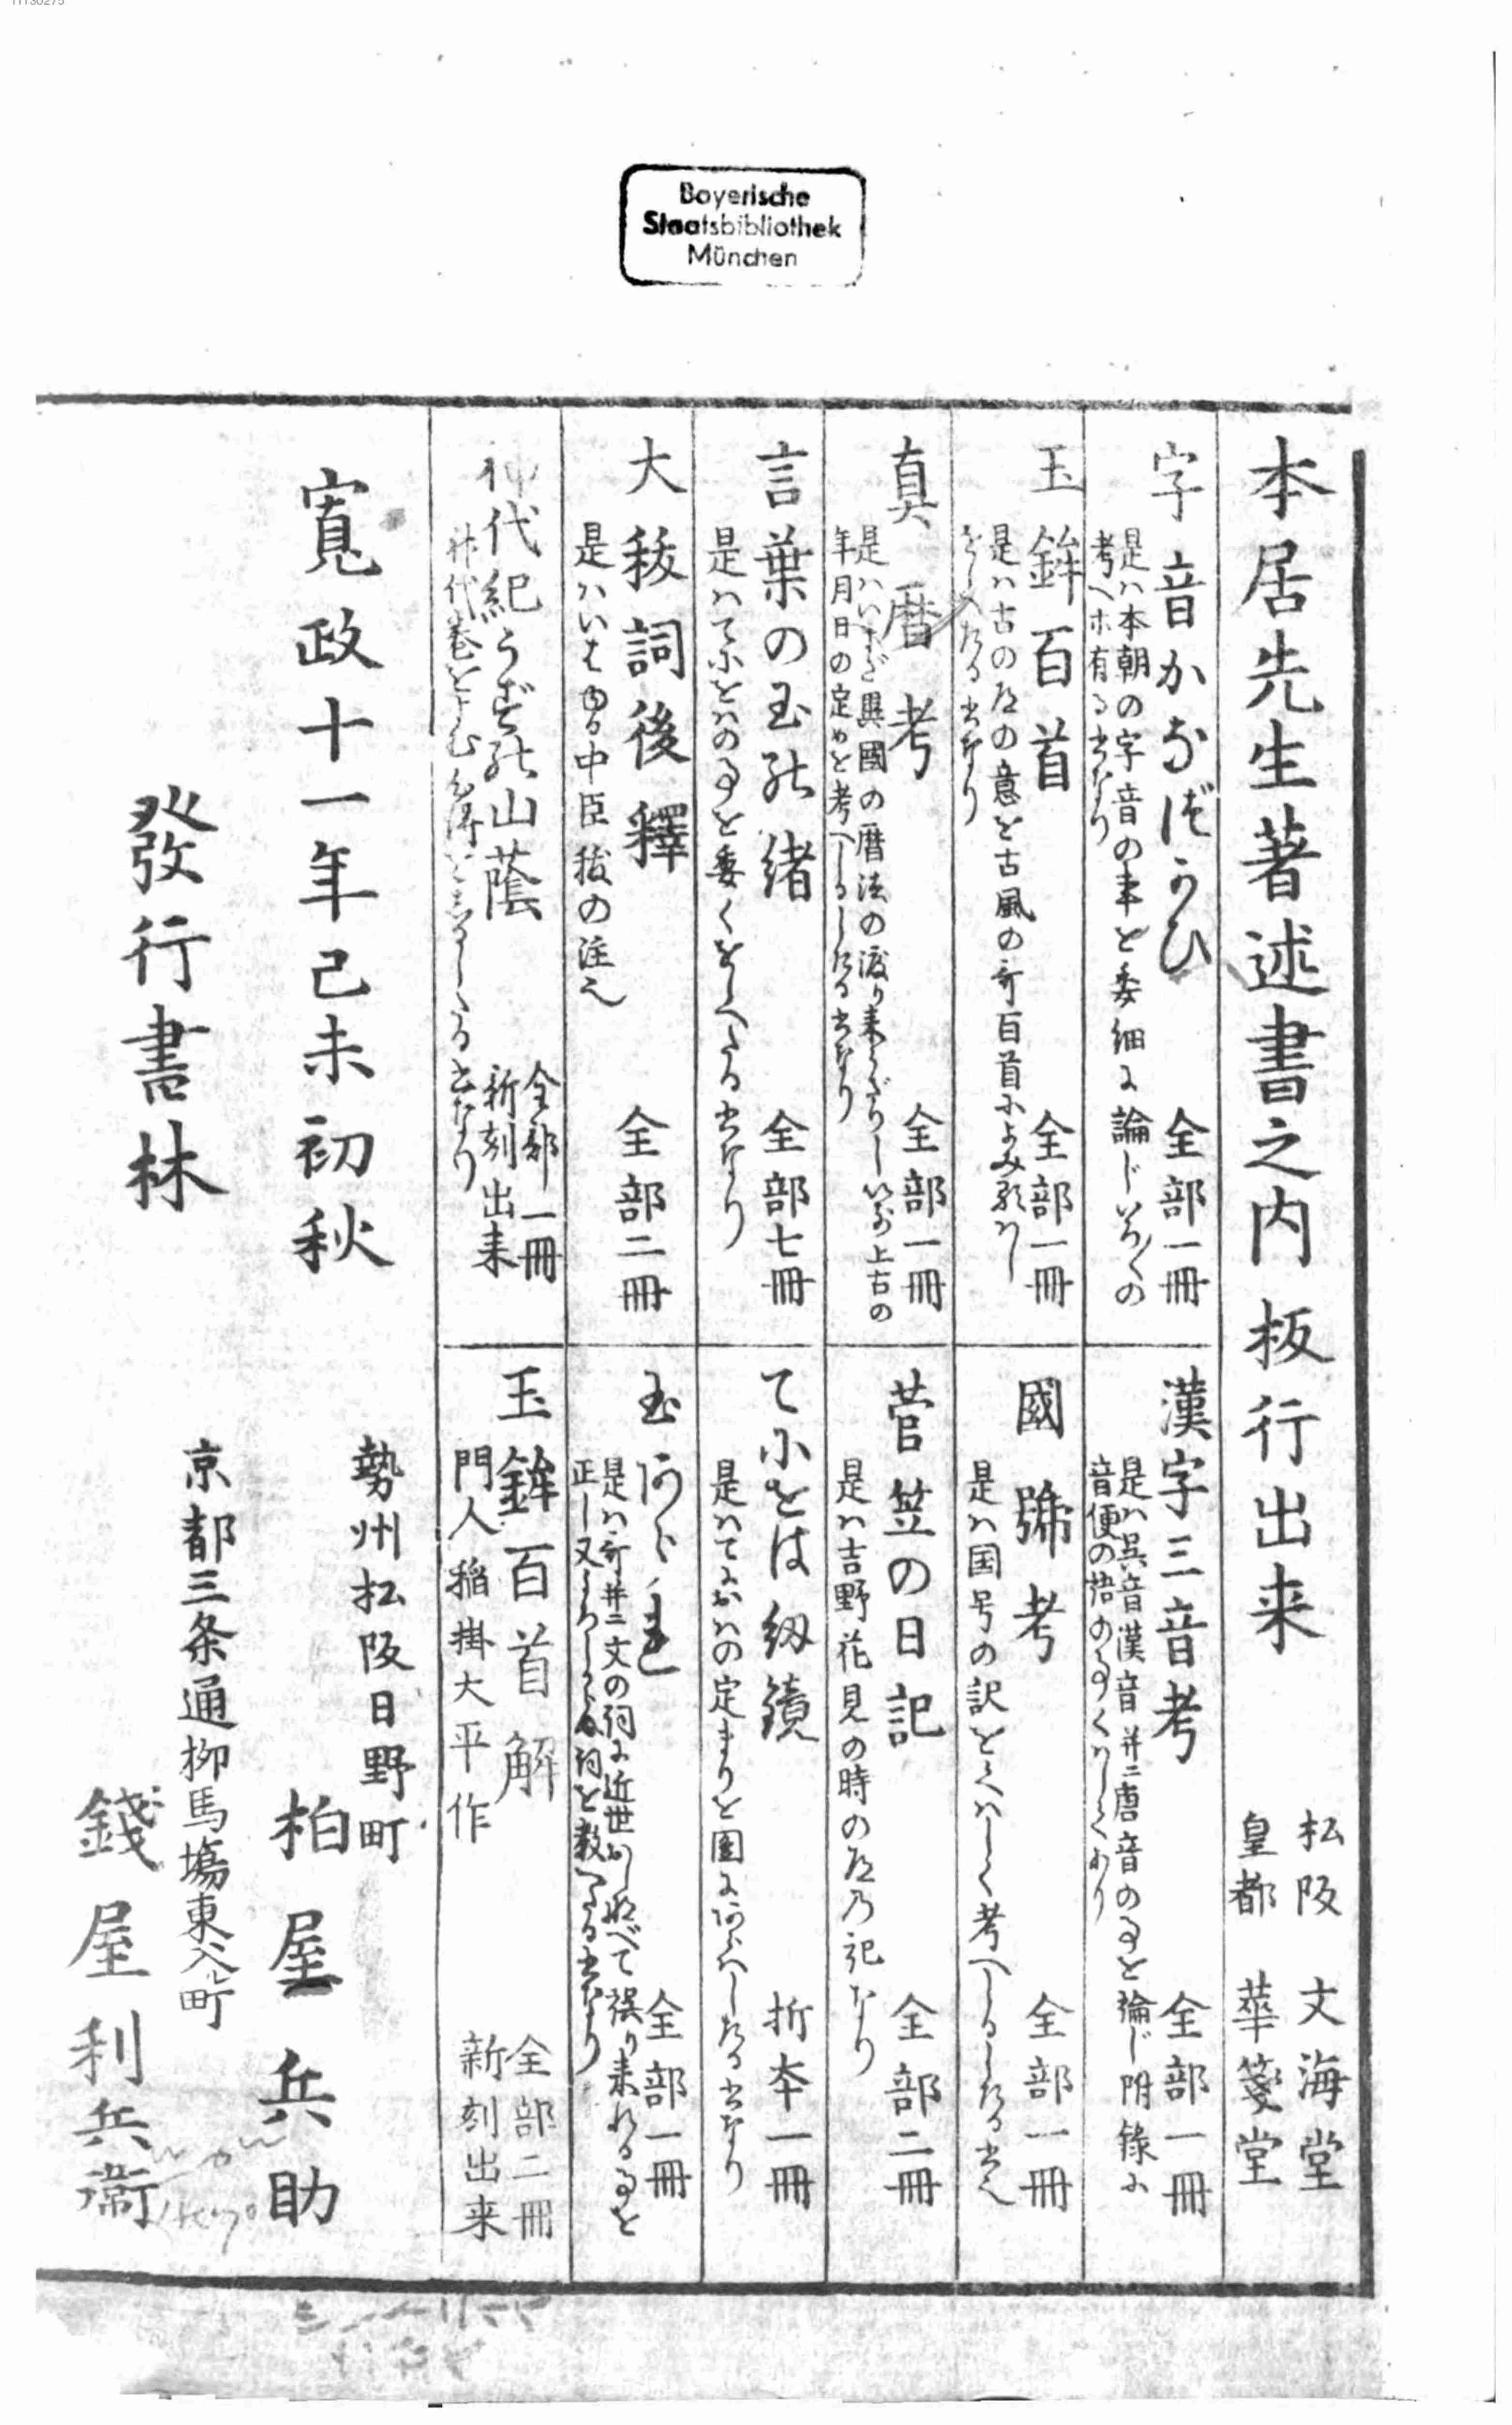 11130275
Bayerische
Staatsbibliothek
München
本居先生著述書之内板行出来
松阪 文海堂
皇都 華箋堂
字音かなづかひ 全部一冊
是ハ本朝の字音の事を委細に論じいろ〱の
考へホ有る书なり
漢字三音考 全部一冊
是ハ呉音漢音并ニ唐音の事を論じ附錄に
音便の語の事くハしくあり
玉鉾百首 全部一冊
是ハ古の道の意を古風の哥百首によみ顕ハし
をしへたる书なり
國號考 全部一冊
是ハ国号の訳をくハしく考へしるしたる书也
真暦考 全部一冊
是ハいまだ異國の暦法の渡り来らざりし以前上古の
年月日の定めを考へしるしたる书なり
菅笠の日記 全部二冊
是ハ吉野花見の時の道乃記なり
言葉の玉能緒 全部七冊
是ハてにをハの事を委くをしへたる书なり
てにをは紐鏡 折本一冊
是ハてにおハの定まりを圖にあらハしたる书なり
大祓詞後釋 全部二冊
是ハいはゆる中臣祓の注也
玉あられ 全部一冊
是ハ哥并ニ文の詞に近世おしなべて誤り来れる事を
正し又よろしからぬ詞を教へたる书なり
神代紀うず能山蔭 全部一冊
新刻出来
神代巻をよむ心得を志るしたる书なり
玉鉾百首解 全部二冊
門人稲掛大平作 新刻出来
寛政十一年己未初秋
發行書林
勢州松阪日野町
柏屋兵助
京都三条通柳馬場東入ル町
錢屋利兵衛